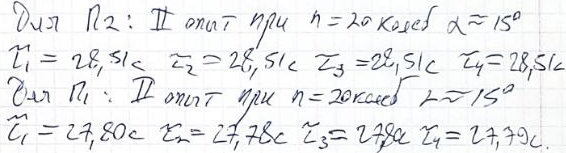 Для П2: II опыт при n=20 колеб α≈15°
τ₁=28,51с τ₂=28,51с τ₃=28,51с τ₄=28,51с
Для П1: II опыт при n=20 колеб α≈15°
τ₁=27,80с τ₂=27,78с τ₃=27,8с τ₄=27,79с.